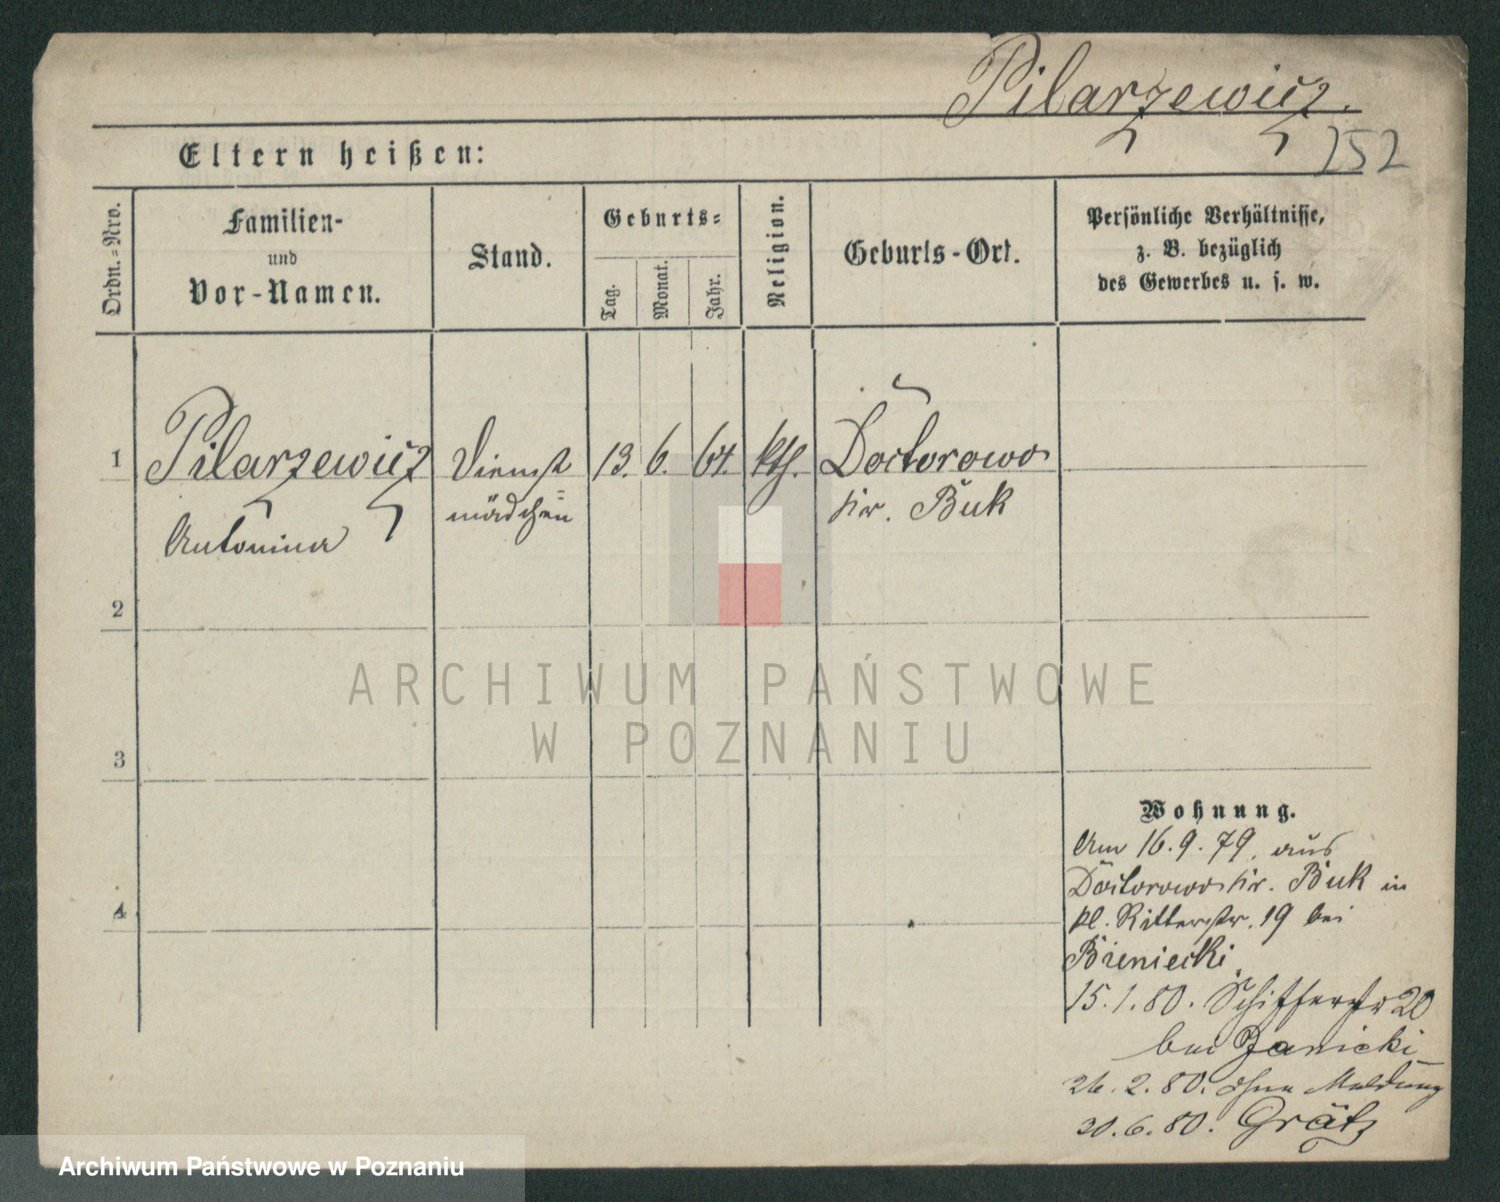 Pilarzewicz.
252
Eltern heißen:
Ordn.-Nro.
Familien-
und
Vor-Namen.
Stand.
Geburts-
Tag.
Monat.
Jahr.
Religion.
Geburts-Ort.
Persönliche Verhältnisse,
z. B. bezüglich
des Gewerbes u. s. w.
1 Pilarzewicz Dienst 13. 6. 64. kth. Doctorowo
mädchen Kr. Buk
Antonina
2
ARCHIWUM PAŃSTWOWE
W POZNANIU
3
Wohnung.
Am 16.9.79. aus
Doctorowo Kr. Buk in
kl. Ritterstr. 19 bei
Bieniecki
15.1.80. Schifferstr 20
bei Janicki
26.2.80. ohne Meldung
20.6.80. Grätz
4
Archiwum Państwowe w Poznaniu